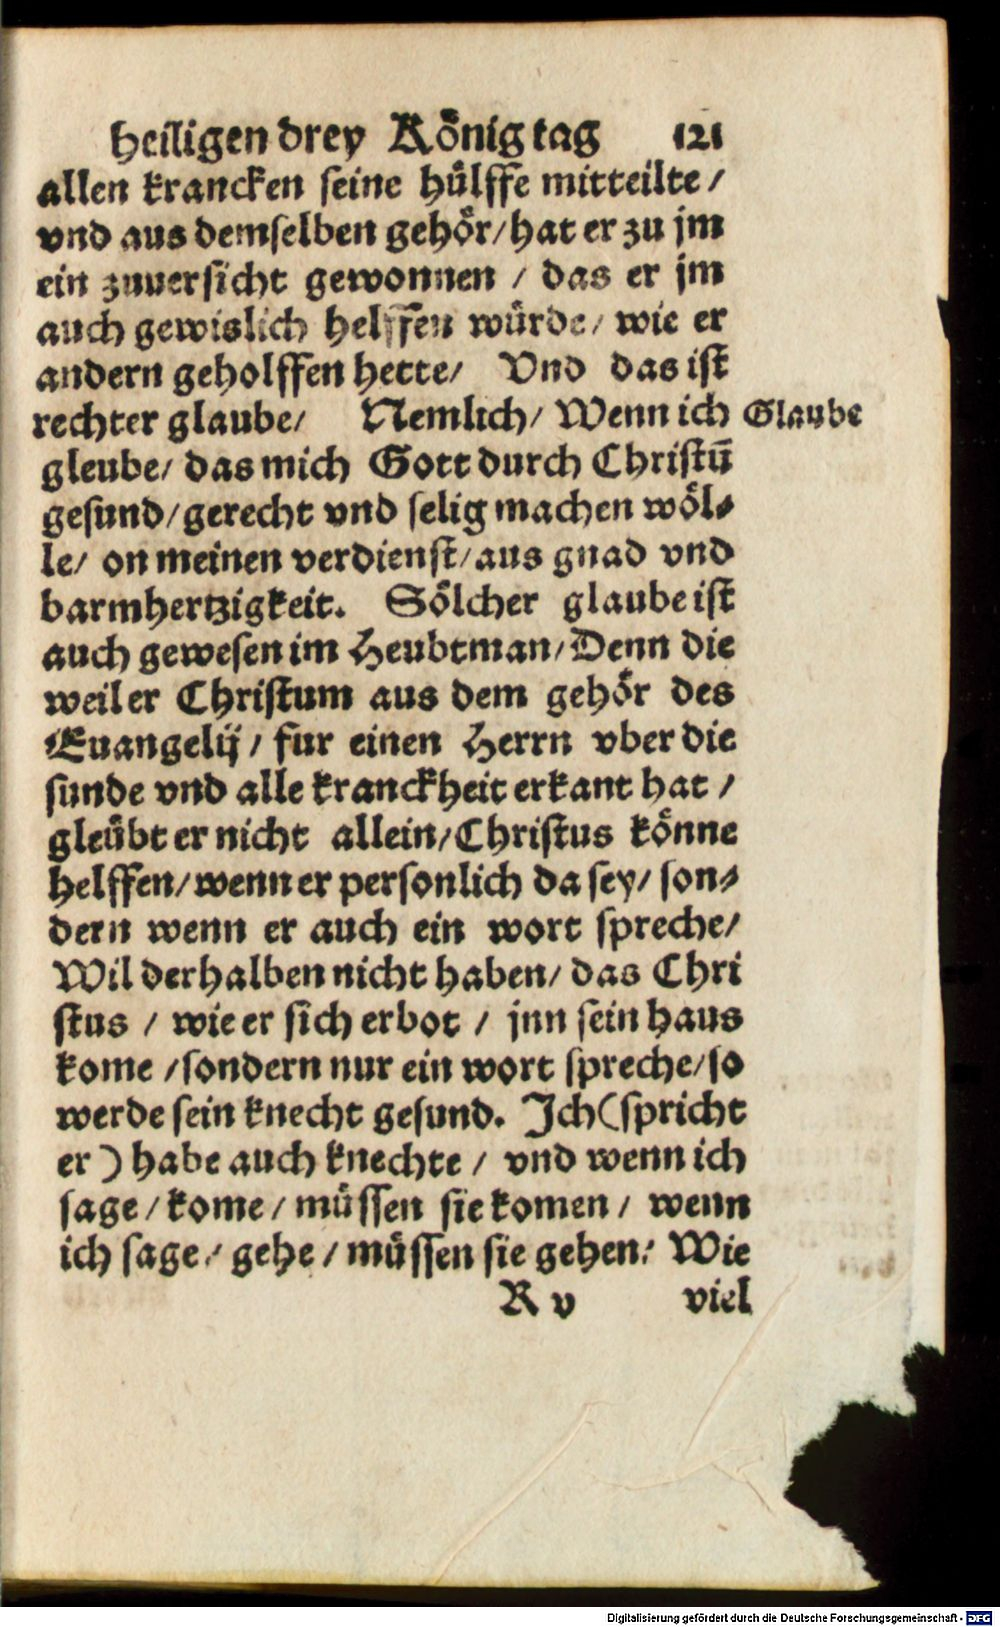 heiligen drey König tag 121
allen krancken seine hůlffe mitteilte /
vnd aus demselben gehőr / hat er zu jm
ein zuuersicht gewonnen / das er jm
auch gewislich helffen wůrde / wie er
andern geholffen hette / Vnd das ist
rechter glaube / Nemlich / Wenn ich Glaube
gleube / das mich Gott durch Christū
gesund / gerecht vnd selig machen wől⸗
le / on meinen verdienst / aus gnad vnd
barmhertzigkeit. Sőlcher glaube ist
auch gewesen im Heubtman / Denn die
weil er Christum aus dem gehőr des
Euangelij / fur einen Herrn vber die
sunde vnd alle kranckheit erkant hat /
gleůbt er nicht allein / Christus kőnne
helffen / wenn er personlich da sey / son⸗
dern wenn er auch ein wort spreche /
Wil derhalben nicht haben / das Chri
stus / wie er sich erbot / jnn sein haus
kome / sondern nur ein wort spreche / so
werde sein knecht gesund. Ich (spricht
er) habe auch knechte / vnd wenn ich
sage / kome / můssen sie komen / wenn
ich sage / gehe / můssen sie gehen: Wie
R v viel
Digitalisierung gefördert durch die Deutsche Forschungsgemeinschaft - DFG